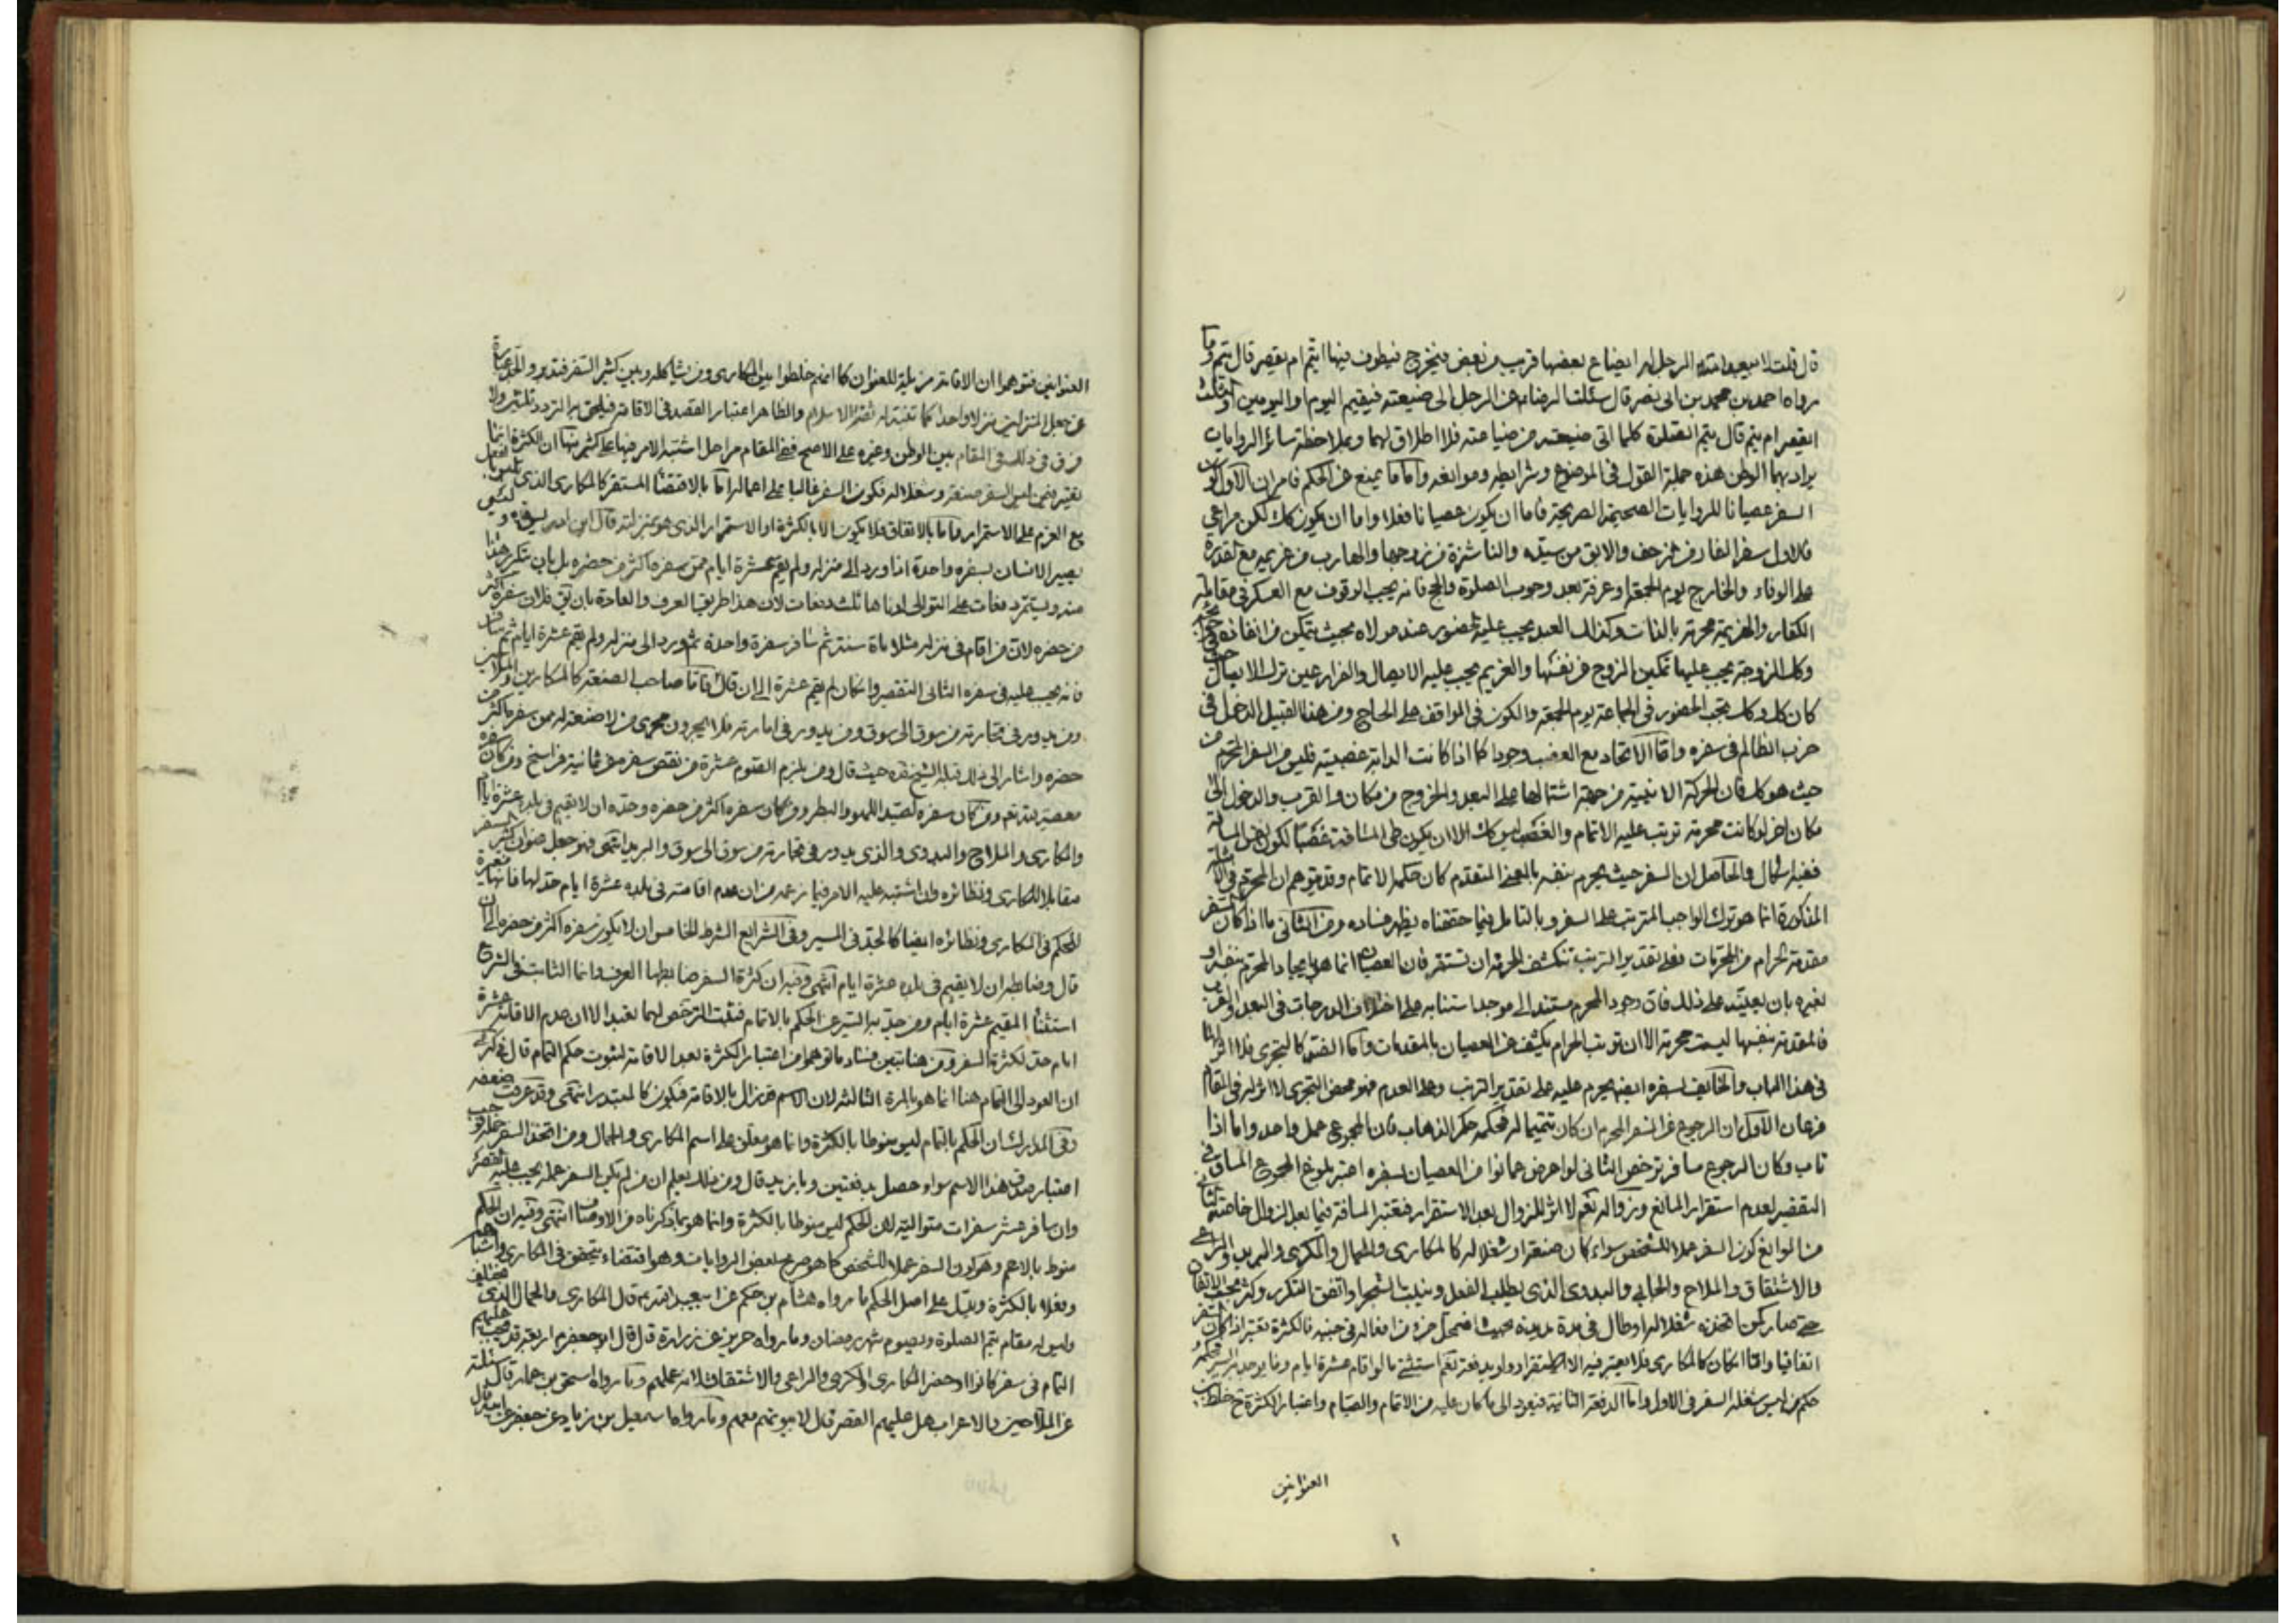 قال قلت لابيعبدالله الرجل له الضياع بعضها قريب من بعض فيخرج فيطوف فيها ايتم ام يقصر قال يتم وما
رواه احمد بن محمد بن ابى نصر قال سئلت الرضا عن الرجل الى ضيعته فيقيم اليوم واليومين او ثلث
ايقصر ام يتم قال يتم الصلوة كلما اتى ضيعته من ضياعه فلا اطلاق لهما وبملاحظة سائر الروايات
يراد بهما الوطن هذه جملة القول فى الموضوع وشرايطه وموانعه واما ما يمنع عن الحكم فامران الاول كون
السفر عصيانا للروايات الصحيحة الصريحة فاما ان يكون عصيانا فعلا واما ان يكون كك لكن مراعى
فالاول سفر الفار من الزحف والابق من سيده والناشزة من زوجها والهارب من غريمه مع قدرة
على الوفاء والخارج يوم الجمعة وعرفة بعد وجوب الصلوة والحج فانه يجب الوقوف مع العسكر فى مقابلة
الكفار والهزيمة محرمة بالذات وكذلك العبد يجب عليه الحضور عند مولاه بحيث يتمكن من انفاذه
وكك الزوجة يجب عليها تمكين الزوج من نفسها والغريم يجب عليه الايصال والفرار عين ترك الايصال
كان كل وكك يجب الحضور فى الجماعة يوم الجمعة والكون فى المواقف على الحاج ومن هذا القبيل الدخل فى
حزب الظالم فى سفره واما الاتحاد مع الغصب وجودا كما اذا كانت الدابة غصبية فليس من السفر المحرم من
حيث هو كك فان الحركة الاينية من جهة اشتمالها على البعد والخروج من مكان والقرب والدخول الى
مكان اخر لو كانت محرمة ترتب عليه الاتمام والغصب ليس كك الا ان يكون طى المسافة غصبا لكون ارض المسافة
ففيه اشكال والحاصل ان السفر حيث يحرم بنفسه بالمعنى المتقدم كان حكمه الاتمام وقد يتوهم ان المحرم فى
المذكورة انما هو ترك الواجب المترتب على السفر وبالتامل فيما حققناه يظهر فساده ومن الثانى ما اذا كان السفر
مقدمة لحرام من المحرمات فعلى تقدير الترتب تنكشف الحرمة ان تستقر فان العصيان انما هو بايجاد المحرم بنفسه او
بغيره بان بعليته على ذلك فان وجود المحرم مستند الى موجد استنابه على اختلاف الدرجات فى البعد والقرب
فالمقدمة بنفسها ليست محرمة الا ان ترتب الحرام يكشف عن العصيان بالمقدمات واما الفسق كالتجرى فلا اثر لهما
فى هذا الباب والخائف لسفره ايضا يحرم عليه على تقدير الترتب وعلى العدم فهو محض التجرى لا اثر له فى المقام
فرعان الاول ان الرجوع عن السفر المحرم ان كان تتميما له فحكمه حكم الذهاب فان المجموع عمل واحد واما اذا
تاب وكان الرجوع سافر ترخص الثانى لو اعرض عما نوى من العصيان بسفره اعتبر بلوغ المجموع المسافة فى
التقصير لعدم استقرار المانع وزواله نعم لا اثر للزوال بعد الاستقرار فتعتبر المسافة فيما بعد الزوال خاصة الثانى
من الموانع كون السفر عملا للشخص سواء كان صنعة او شغلا له كالمكارى والجمال والمكرى والبريد والراعى
والاشتقان والملاح والجابى والبدوى الذى يطلب الفعل ومنبت الشجر او اتفق التكرر وكثر بحيث الاتفاق
حتى صار كمن اتخذه شغلا له او طال فى مدة مديدة بحيث اضمحل حزمن افعاله فى جنبه فالكثرة تعتبر اذا كان السفر
اتفاقيا واما اذا كان كالمكارى فلا يعتبر فيه الا الاستقرار ولو بدفعة نعم استثنى ما لو اقام عشرة ايام وما يوجد به السير فحكمه
حكم من ليس شغله السفر فى الاول واما الدفعة الثانية فيعود الى ما كان عليه من الاتمام والصيام واعتبار الكثرة ح خلط بين
العنوانين
العنوانين فتوهموا ان الاقامة مزيلة للعنوان كما انهم خلطوا بين المكارى ومن يشاكله وبين كثير السفر فتدبر والحد عبارة
عن جعل المنزلين منزلا واحدا كما تفتنه له ثقة الاسلام والظاهر اعتبار القصد فى الاقامة فيلحق به التردد ثلثين ولا
فرق فى ذلك فى المقام بين الوطن وغيره على الاصح ففى المقام مراحل اشتبه الامر فيها على كثير منها ان الكثرة انما
تعتبر فيمن ليس السفر صنعة وشغلا له فكون السفر غالبا على اعماله اما بالاقتضاء المستقر كالمكارى الذى
مع العزم على الاستمرار واما بالاتفاق فلا يكون الا بالكثرة او الاستمرار الذى هو بمنزلته قال ابن ادريس
يصير الانسان بسفره واحدة اذا ورد الى منزله ولم يقم عشرة ايام ممن سفره اكثر من حضره بل بان يتكرر هذا
منه ويستمر دفعات على التوالى ادناها ثلث دفعات لان هذا طريقه العرف والعادة بان يقال فلان سفره اكثر
من حضره لان من اقام فى منزله مثلا ماة سنة ثم سافر سفرة واحدة ثم ورد الى منزله ولم يقم عشرة ايام ثم سافر
فانه يجب عليه فى سفره الثانى التقصير وان كان لم يقم عشرة الى ان قال فاما صاحب الصنعة كالمكارين والملاحين
ومن يدور فى تجارته من سوق الى سوق ومن يدور فى امارته فلا يجرون مجرى من لا صنعة له ممن سفره اكثر من
حضره واشار الى ذلك قبله الشيخ ره حيث قال ومن يلزم الصوم عشرة من نقص سفره من ثمانية فراسخ ومن كان سفره
معصية لله تعالى ومن كان سفره لصيد اللهو والبطر ومن كان سفره اكثر من حضره وحده ان لا يقيم فى بلده عشرة ايام
والمكارى والملاح والبدوى والذى يدور فى تجارته من سوق الى سوق والبريد انتهى فهو جعل عنوان كثير السفر
مقابلا للمكارى ونظائره وان اشتبه عليه الامر فيما زعمه من ان عدم اقامته فى بلده عشرة ايام حد لها فانها مغيرة
للحكم فى المكارى ونظائره ايضا كالجد فى المسير وفى الشرايع الشرط الخامس ان لا يكون سفره اكثر من حضره الى ان
قال وضابطه ان لا يقيم فى بلده عشرة ايام انتهى وفيه ان كثرة السفر ضابطها العرف وانما الثابت فى الشرع
استثناء المقيم عشرة ايام ومن جد به السير عن الحكم بالاتمام فثبت الترخص لهما تعبدا لا ان عدم الاقامة عشرة
ايام حد لكثرة السفر ومن هنا تبين فساد ما توهموا من اعتبار الكثرة بعد الاقامة لثبوت حكم التمام قال فى كرى
ان العود الى التمام هنا انما هو بالمرة الثالثة لان الاسم قد زال بالاقامة فيكون كالمبتدئ انتهى وقد عرفت ضعفه
وفى المدارك ان الحكم بالتمام ليس منوطا بالكثرة وانما هو معلق على اسم المكارى والجمال ومن اتخذ السفر عمله فوجب
اعتبار صدق هذا الاسم سواء حصل بدفعتين وبازيد قال ومن ذلك يعلم ان من لم يكن السفر عمله يجب عليه التقصير
وان سافر عشر سفرات متوالية لان الحكم ليس منوطا بالكثرة وانما هو بما ذكرناه من الاوصاف انتهى وفيه ان الحكم
منوط بالاعم وهو كون السفر عملا للشخص كما هو صريح بعض الروايات وهو اقتضاء يتحقق فى المكارى واشباهه
وفعلا بالكثرة ويدل على اصل الحكم ما رواه هشام بن حكم عن ابيعبد الله قال المكارى والجمال الذى يختلف
وليس له مقام يتم الصلوة ويصوم شهر رمضان وما رواه حريز عن زرارة قال قال ابو جعفر اربعة قد يجب عليهم
التمام فى سفر كانوا او حضر المكارى والكرى والراعى والاشتقان لانه عملهم وما رواه اسحق بن عمار قال سئلته
عن الملاحين والاعراب هل عليهم تقصير قال لا بيوتهم معهم وما رواه اسمعيل بن زياد عن جعفر عن ابيه قال